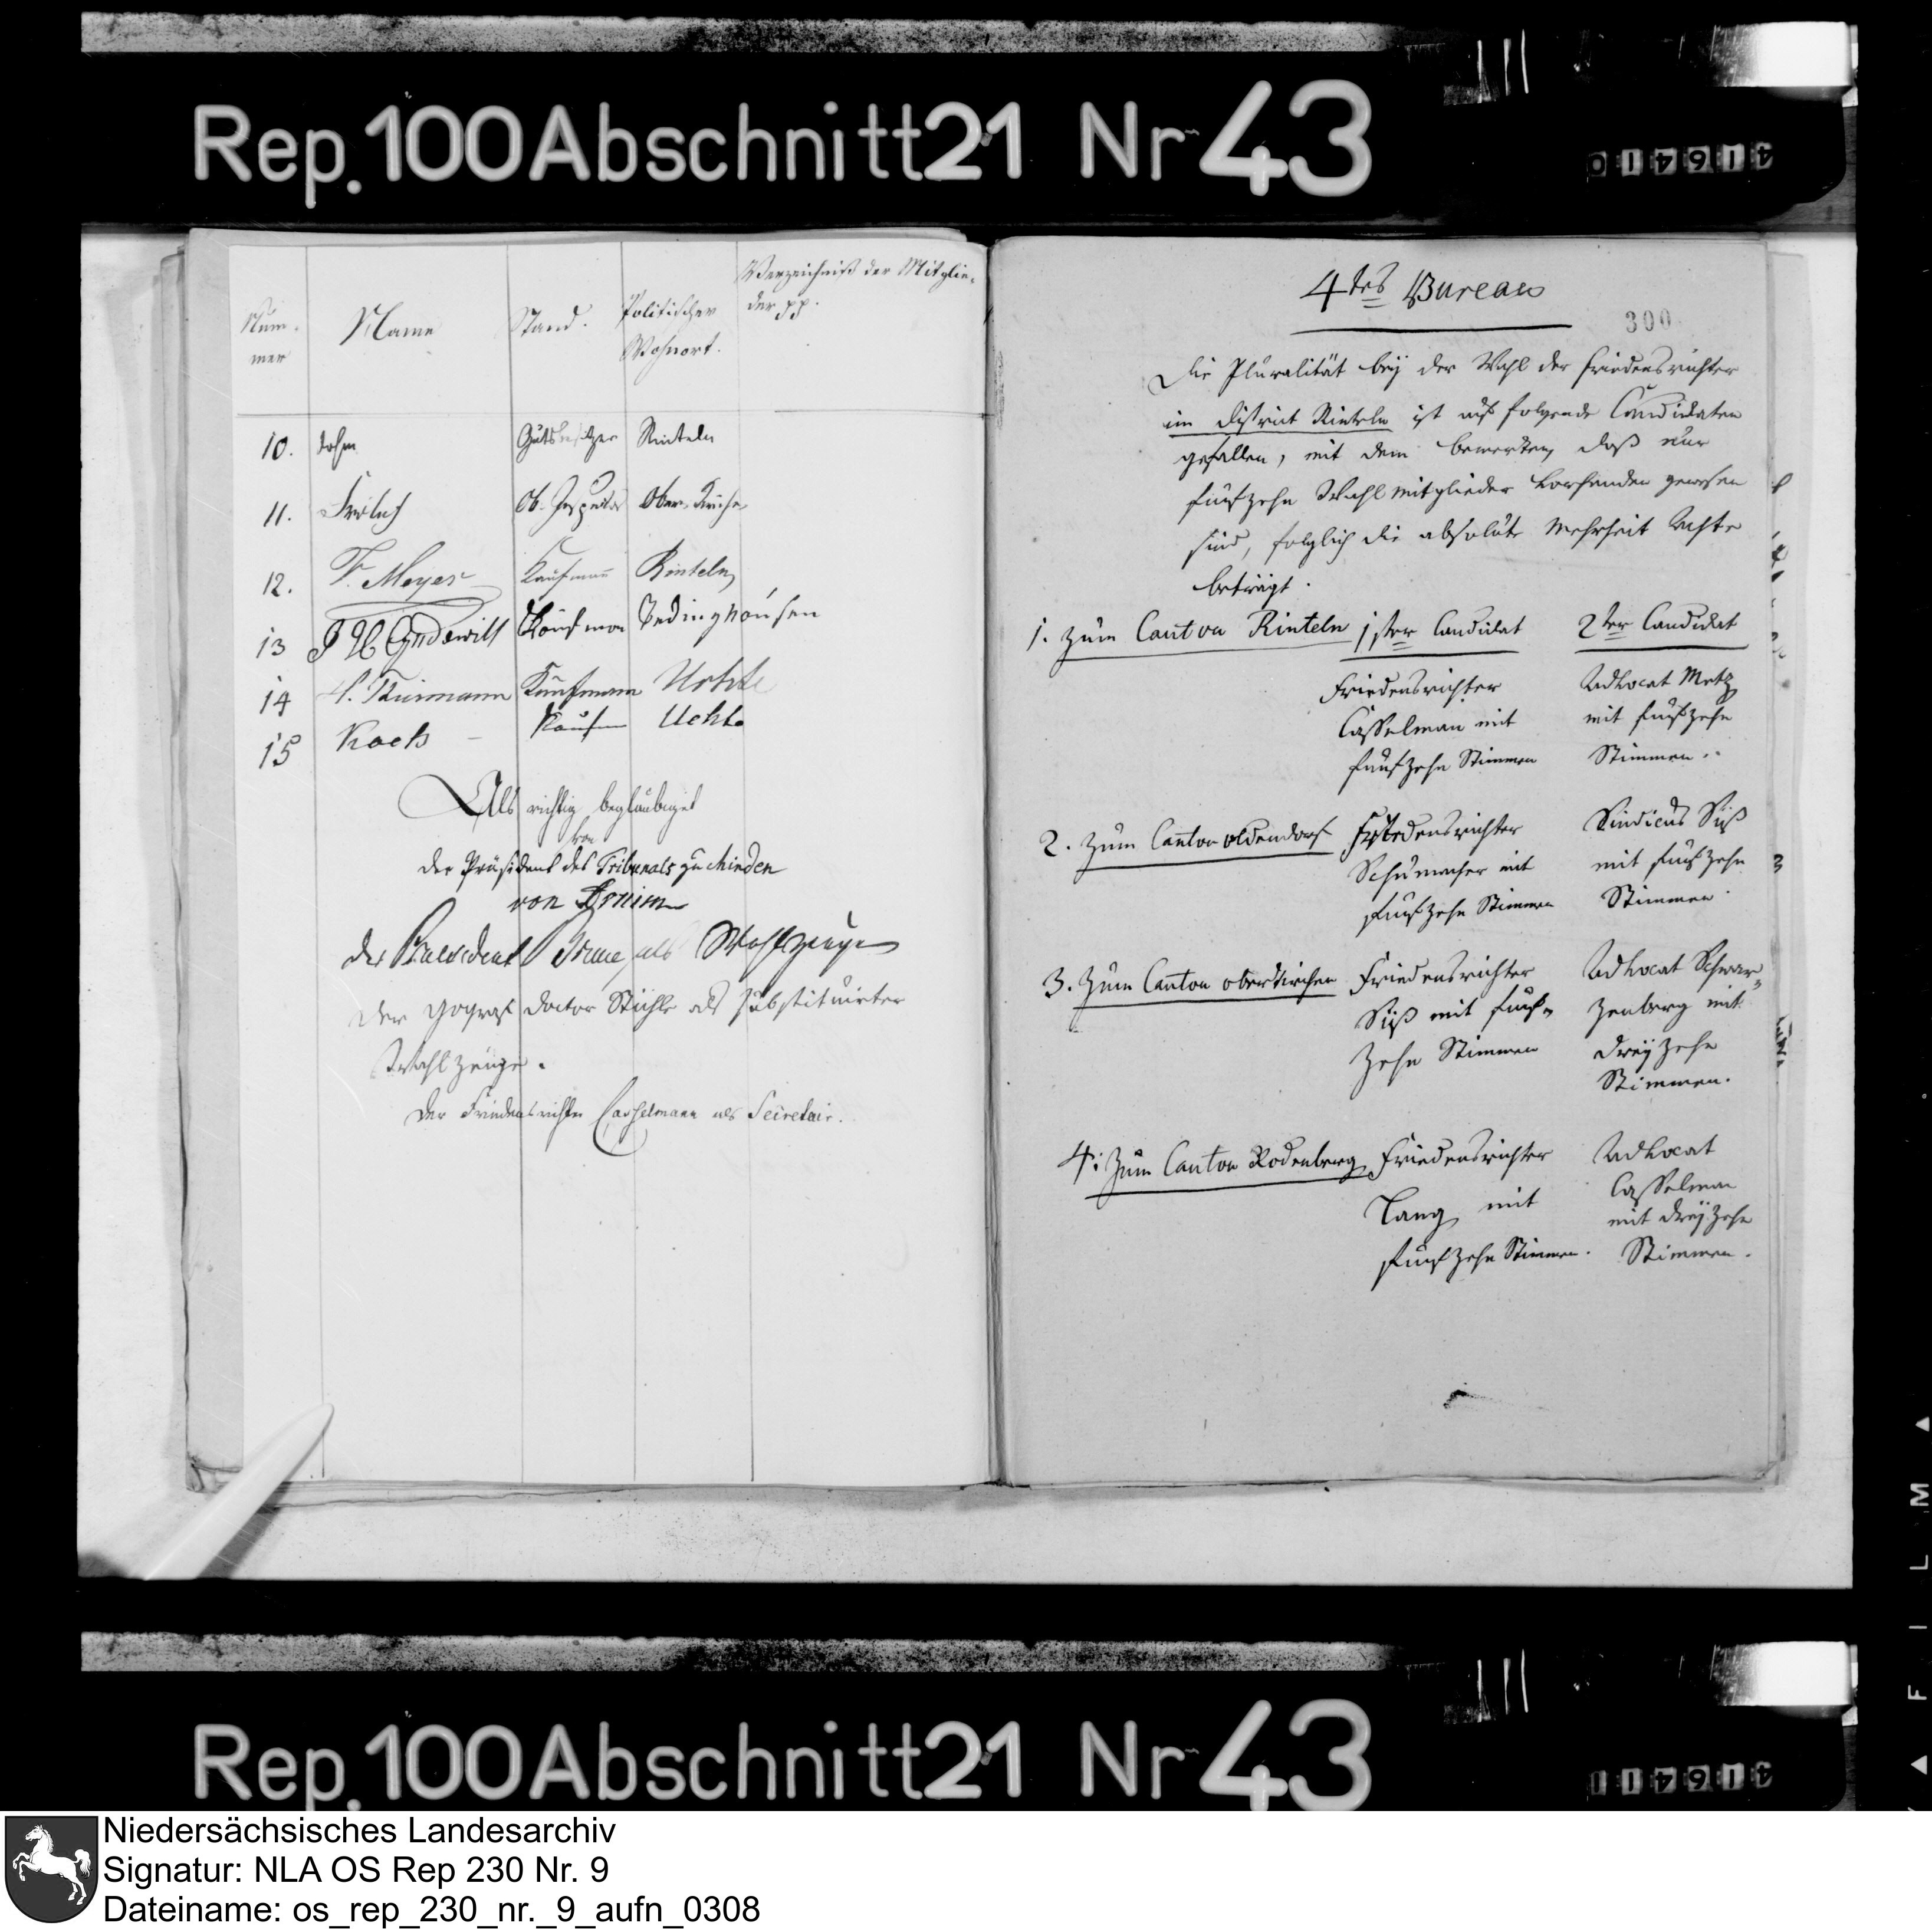 Rep. 100 Abschnitt 21 Nr 43
Num-
mer
Name
Stand.
Politischer
Wohnort.
Verzeichniß der Mitglie-
der pp.
10. Dohm Gutsbesitzer Rinteln
11. Frölich Ob. Inspector
12. F. Meyer Kaufmann Rinteln
13 Kaufman Tedinghausen
14 Kaufmann Uchte
15 Koch Kaufm Uchte
Als richtig beglaubiget
der Präsident des Tribunals zu Minden
von
der Praesident als Wahlzeuge
der Gograf Doctor als substituirter
Wahlzeuge.
Der Friedensrichter Casselmann als Secretair.
4tes Bureau
300
Die Pluralität bey der Wahl der Friedensrichter
im District Rinteln ist auf folgende Candidaten
gefallen, mit dem bemerken, daß nur
funfzehn Wahlmitglieder vorhanden gewesen
sind, folglich die absolute Mehrheit Achte
beträgt.
1. zum Canton Rinteln 1ster Candidat 2ter Candidat
Friedensrichter Advocat Metz
Casselman mit mit funfzehn
funfzehn Stimmen Stimmen.
2. zum Canton Oldendorf Friedensrichter Sindicus Süß
Schumacher mit mit funfzehn
funfzehn Stimmen Stimmen.
3. zum Canton Obernkirchen Friedensrichter Advocat Schwar-
Süß mit funf- zenberg mit
zehn Stimmen dreyzehn
Stimmen.
4. zum Canton Rodenberg Friedensrichter Advocat
Lang mit Casselman
mit dreyzehn
funfzehn Stimmen. Stimmen.
FILM
Rep. 100 Abschnitt 21 Nr 43
Niedersächsisches Landesarchiv
Signatur: NLA OS Rep 230 Nr. 9
Dateiname: os_rep_230_nr._9_aufn_0308